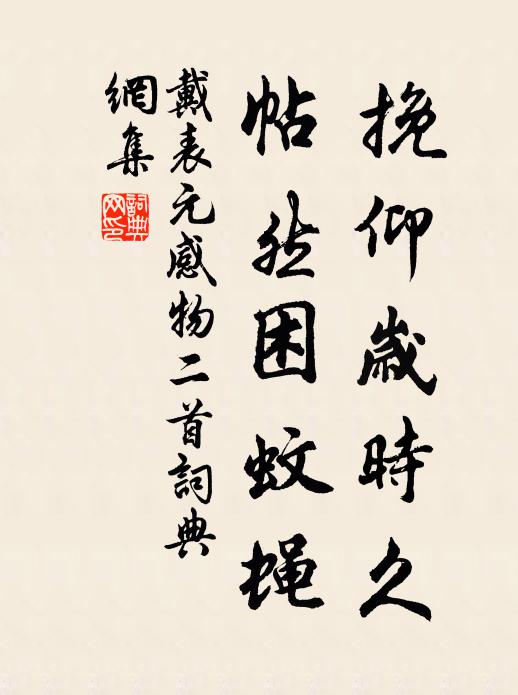 挽仰歲時久
帖然困蚊蝇
戴表元感物二首詞典
網集
詞典
网印